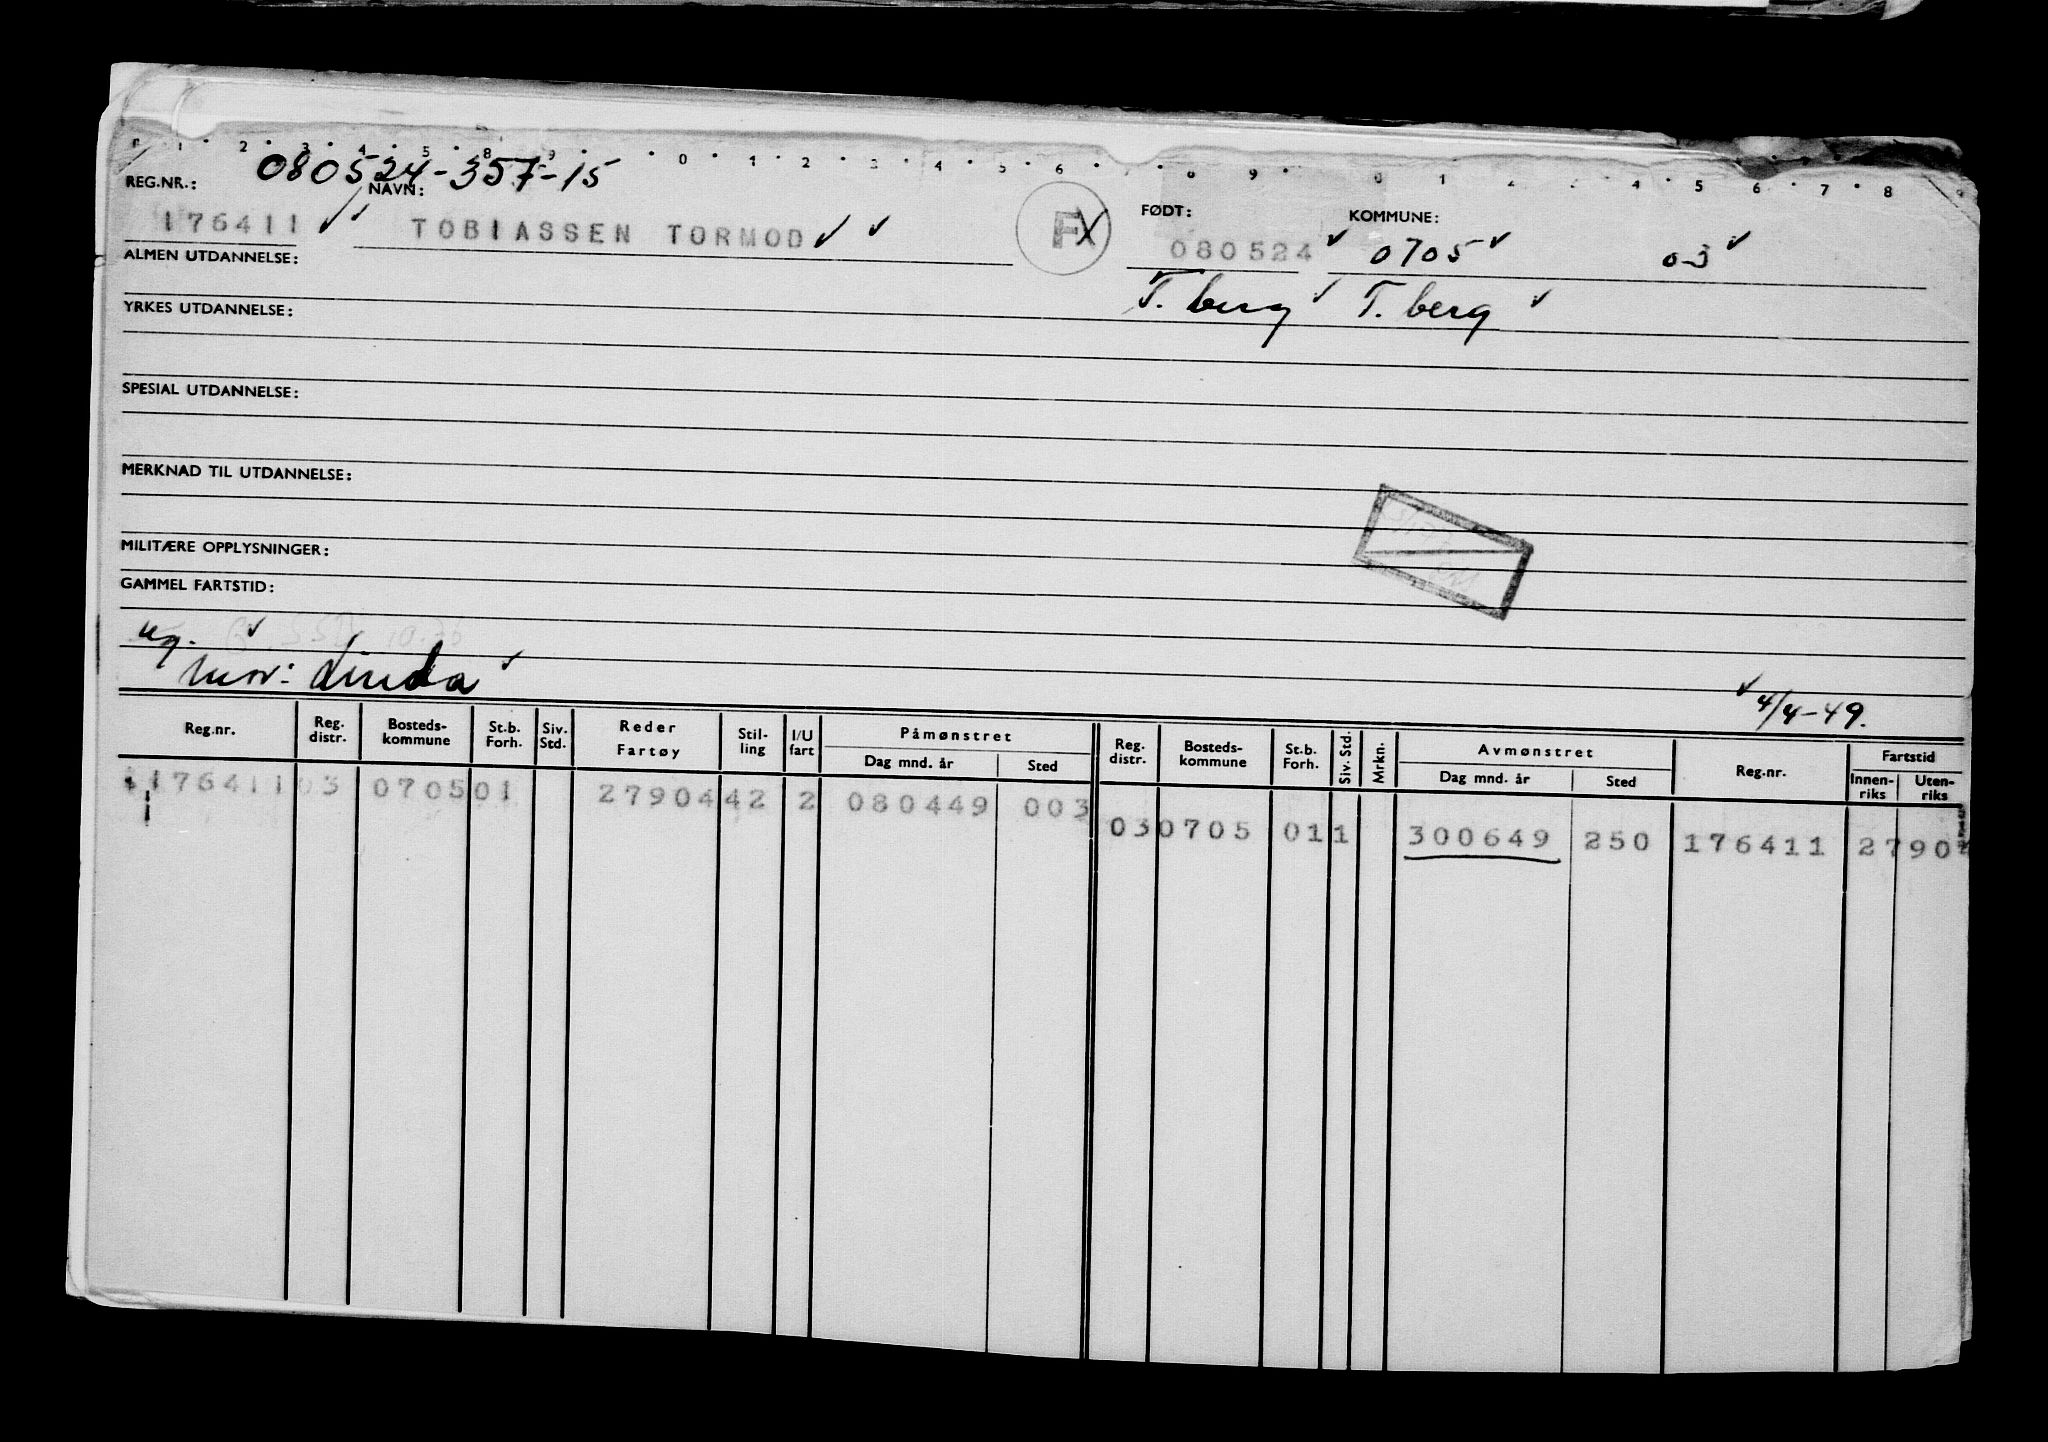 080524-357-15
REG.NR.: NAVN: FØDT: KOMMUNE:
176411 TOBIASSEN TORMOD F 080524 0705 03
ALMEN UTDANNELSE:
T. berg T. berg
YRKES UTDANNELSE:
SPESIAL UTDANNELSE:
MERKNAD TIL UTDANNELSE:
MILITÆRE OPPLYSNINGER:
GAMMEL FARTSTID:
ug.
Mor: Linda
4/4-49.
Reg.nr. Reg. distr. Bosteds-kommune St.b. Forh. Siv. Std. Reder Fartøy Stil-ling I/U fart Påmønstret Dag mnd. år Sted Reg. distr. Bosteds-kommune St.b. Forh. Siv. Std. Mrkn. Avmønstret Dag mnd. år Sted Reg.nr. Fartstid Innen-riks Uten-riks
176411 03 0705 01 27904 42 2 080449 003
03 0705 01 1 300649 250 176411 2790